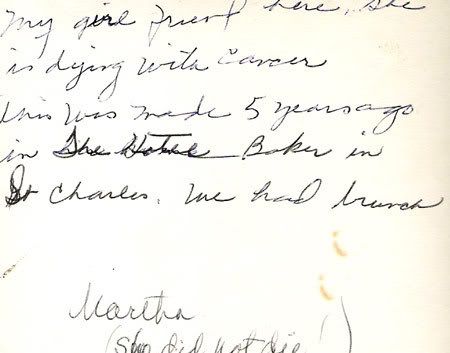 My girl friend here, She
is dying with Cancer
This was made 5 years ago
in The Hotel Baker in
St Charles. We had brunch
Martha
(She did not die!)